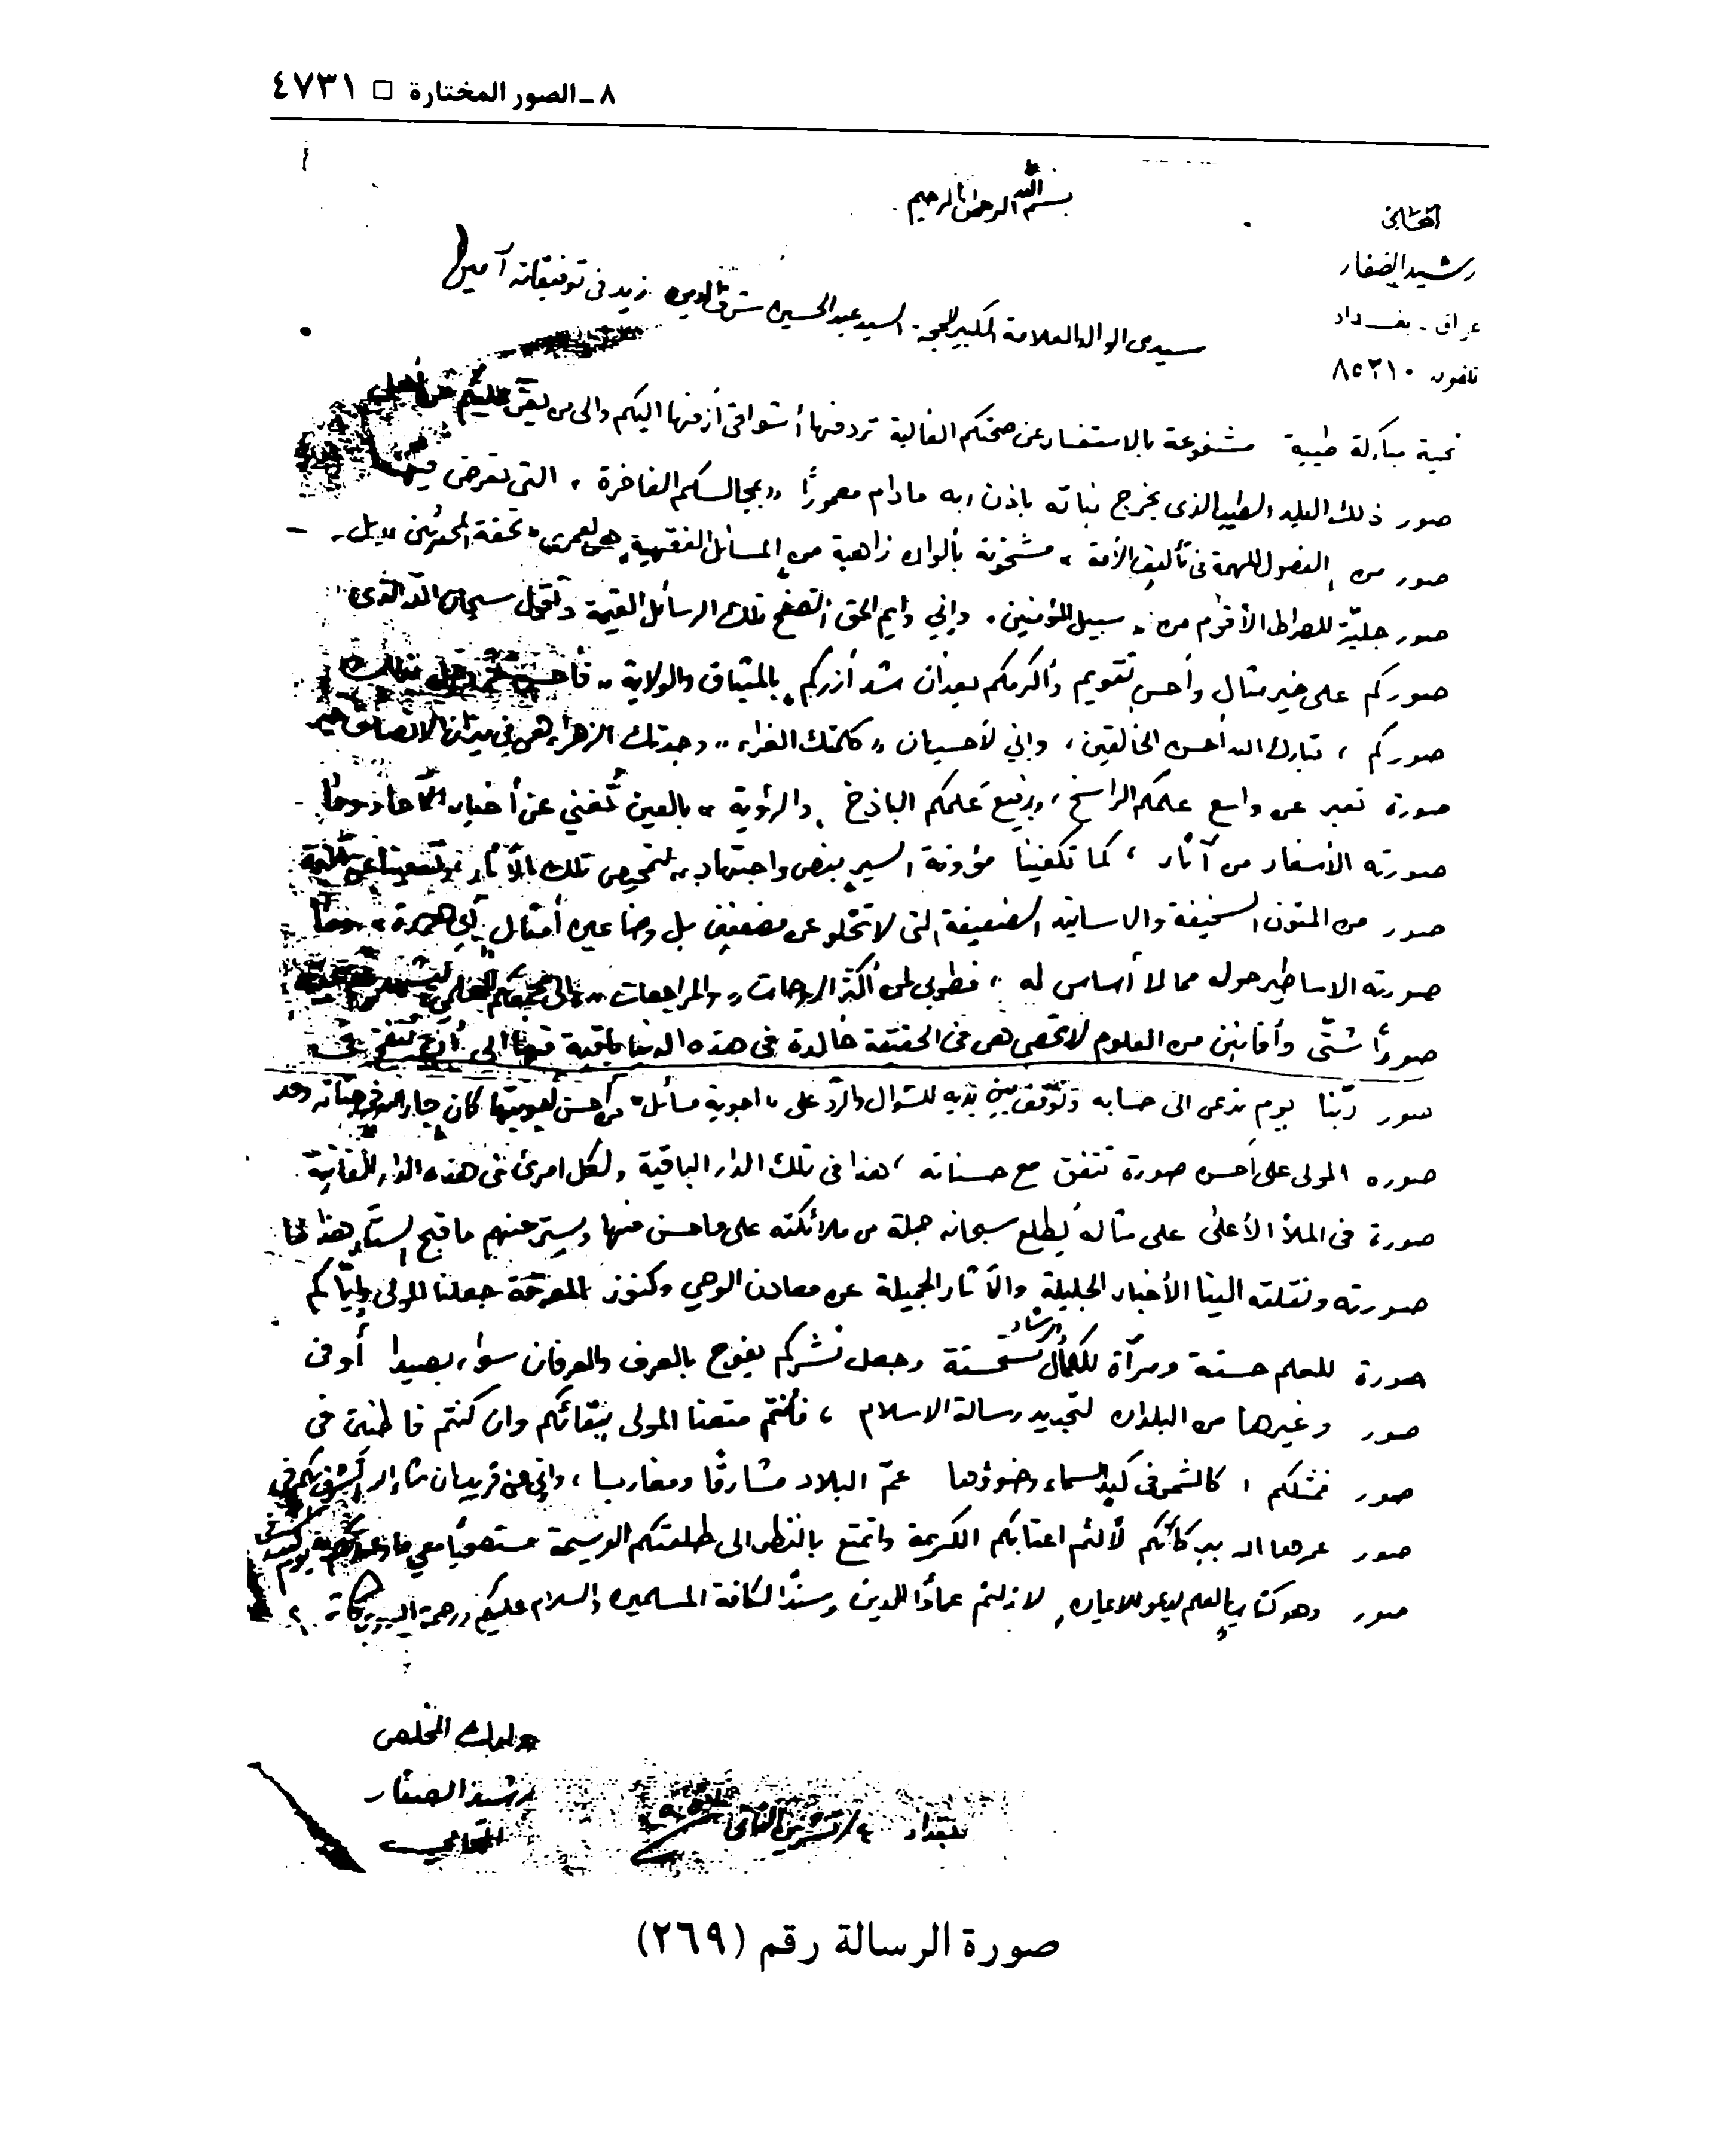 ٨ ـ الصور المختارة □ ٤٧٣١
بسم الله الرحمن الرحيم
رشيد الصفار
عراق - بغداد
تلفون ٨٥٢١٠
سيدي الوالد العلامة الكبير الحجة السيد عبد الحسين شرف الدين زيد في توفيقاته آمين
تحية مباركة طيبة مشفوعة بالاستفسار عن صحتكم الغالية تردفها أشواقي أزفها اليكم والى من
صور ذلك البلد الطيب الذي يخرج نباته باذن ربه مادام معمورًا «بمجالسكم الفاخرة» التي تعرض فيها
صور من الفصول المهمة في تأليف الأمة» مشحونة بألوان زاهية من المسائل الفقهية هي لعمري تحفة المحدثين «بل
صور جلية للصراط الأقوم من سبيل المؤمنين. وإني وايم الحق أتصفح تلك الرسائل القيمة وأقول سبحان الله الذي
صوركم على خير مثال وأحسن تقويم وأكرمكم بعد أن شد أزركم بالميثاق والولاية»
صوركم ، تبارك الله أحسن الخالقين، وإني لأحسب ان «كلمتك الغراء» وجدتك الزهراء هي في ميزان الانصاف خير
صورة تعبر عن واسع علمكم الراسخ، ورفيع عَلمكم الباذخ والرؤية» بالعين تُغني عن أخبار الآحاد وما
صورته الأسفار من آثار ، كما تكفينا مؤونة السير بنص واجتهاد» لتمحيص تلك الآثار
صور من المتون السخيفة والاسانيد الضعيفة التي لا تخلو عن مضعف بل وضاعين أمثال أبي هريرة» وما
صورته الاساطير حوله مما لا أساس له ، فطوبى لمن أكثر المراجعات»
صورًا شتّى وأفانين من العلوم لا تحصى هي في الحقيقة خالدة في هذه الدنيا باقية فيها الى أن ينفخ في
صور ربّنا يوم ندعى الى حسابه ونوقف بين يديه للسؤال والرد على «اجوبة مسائل» من أحسن أجوبتها كان جار الله في جنانه وقد
صوره المولى على أحسن صورة تتفق مع حسناته ، هذا في تلك الدار الباقية ولكل امرئ في هذه الدار الفانية
صورة في الملأ الأعلى على مثاله يُطلع سبحانه جملة من ملائكته على ما حسن منها ويستر عنهم ما قبح الستار هذا ما
صورته ونقلته الينا الأخبار الجليلة والآثار الجميلة عن معادن الوحي وكنوز المعرفة جعلنا المولى وإيّاكم
صورة للعلم حسنة ومرآة للكمال والرشاد مستحسنة وجعل نشركم يفوح بالعرف والعرفان سواء بصيدا أو في
صور وغيرها من البلدان لتجديد رسالة الاسلام ، فأنتم متعنا المولى ببقائكم وان كنتم قاطنين في
صور فمثلكم كالشمس في كبد السماء وضوؤها عمّ البلاد مشارقًا ومغاربا ، وإني عن قريب ان شاء الله أتشرف بكم في
صور عمرها الله ببركاتكم لألثم اعتابكم الكريمة وأتمتع بالنظر الى طلعتكم الوسيمة مستصحبًا معي
صور وهو كتاب العلم لا زلتم عمادًا للدين وسندًا لكافة المسلمين والسلام عليكم ورحمة الله وبركاته
ولدك المخلص
رشيد الصفار
بغداد ٤/ تشرين الثاني
صورة الرسالة رقم (٢٦٩)